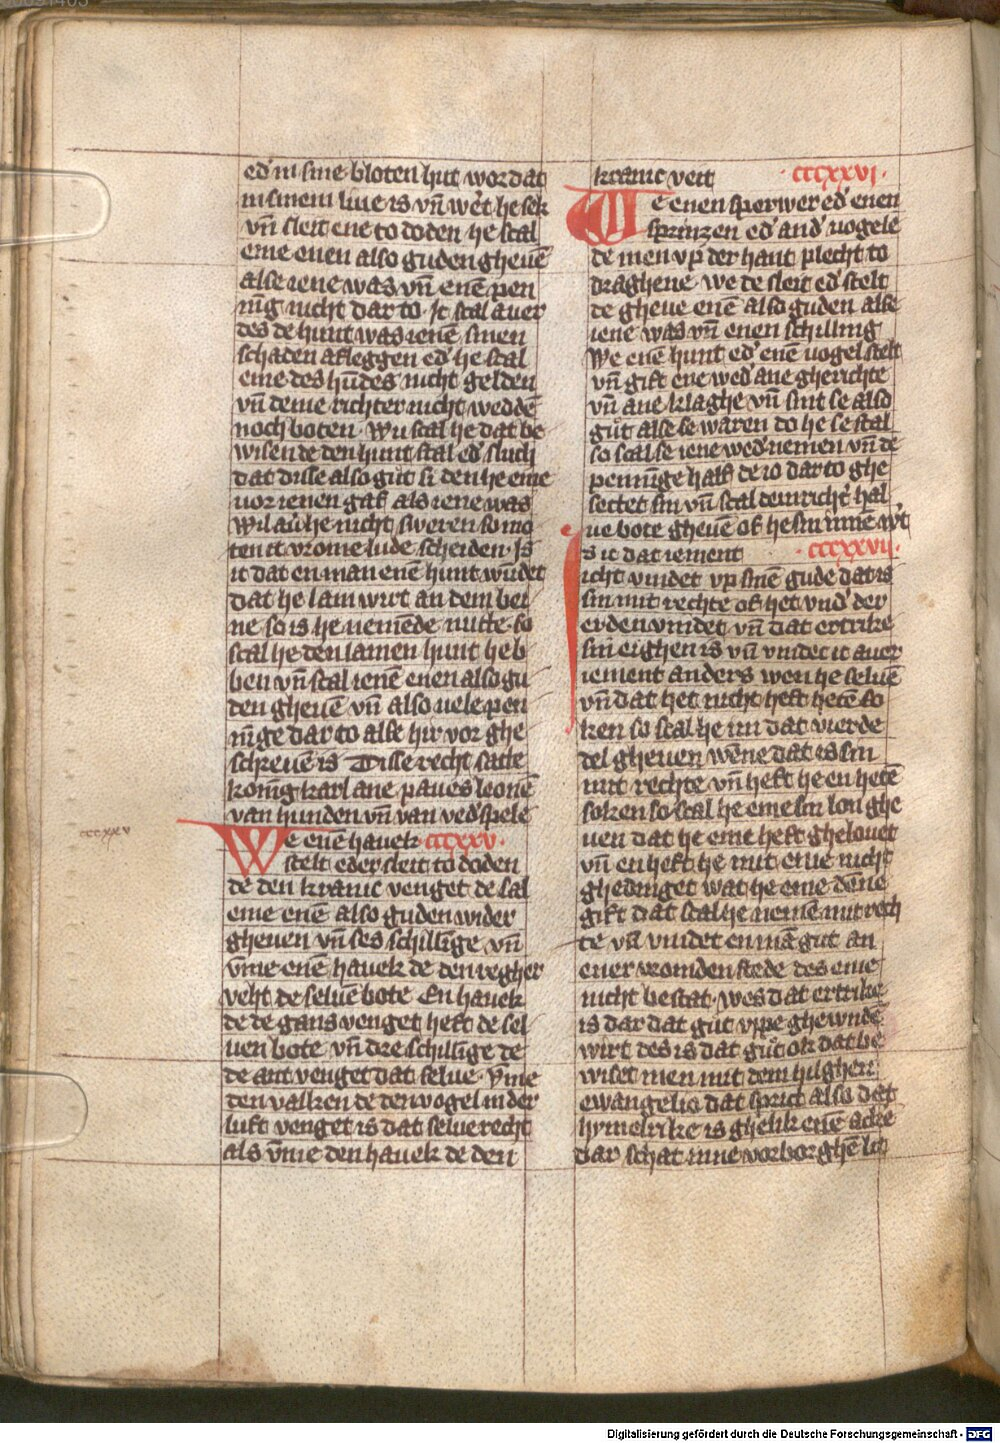 ed' in sine bloten hut wor dat
in sinem liue is vn̄ wert he sek
vn̄ sleit ene to doden he scal
eme enen also guden gheuē
alse iene was vn̄ enē pen
nīg nicht dar to. It scal auer
des de hunt was ienē sinen
schaden afleggen ed' he scal
eme des hūdes nicht gelden
vn̄ deme richter nicht weddē
noch boten. Wu scal he dat be
wisen de den hunt stal ed' sluch
dat disse also gut si den he eme
vor ienen gaf als iene was
Wil au' he nicht sweren so mo
ten it vrome lude scheiden. Is
it dat en man enē hunt wūdet
dat he lam wirt an dem bei
ne so is he nemēde nutte. so
scal he den lamen hunt heb
ben vn̄ scal ienē enen also gu
den gheuē vn̄ also uele pen
nīge dar to alse hir vor ghe
schreuē is Disse recht satte
konīg karl ane paues leonē
van hunden vn̄ van ved'spele
We enē hauek ccccxxv.
stelt eder sleit to doden
de den kranic venget de sal
eme enē also guden wider
gheuen vn̄ ses schillīge vn̄
vm̄e enē hauek de den regher
veht de seluē bote En hauek
de de gans venget heft de sel
uen bote vn̄ dre schillīge de
de ant venget dat selue. Vm̄e
den valken de den vogel in der
luft venget is dat selue recht
als vm̄e den hauek de den
ccccxxv
kranic veit ccccxxvi.
We enen sperwer ed' enen
sprinzen ed' and' uogele
de men vp der hant plecht to
draghene we de sleit ed' stelt
de gheue enē also guden alse
iene was vn̄ enen schilling
We enē hunt ed' enē uogel stelt
vn̄ gift ene wed' ane gherichte
vn̄ ane klaghe vn̄ sint se also
gut alse se waren do he se stal
so scal se iene wed' nemen vn̄ de
pennīge half de io dar to ghe
settet sin vn̄ scal dem richt' hal
ue bote gheuē of he sin inne w't
Is it dat iement ccccxxvii.
icht vindet vp sinē gude dat is
sin mit rechte of het vnd' der
erden vindet vn̄ dat ertrike
sin eighen is vn̄ vindet it auer
iement anders wen he seluē
vn̄ dat het nicht heft hetē so
ken so scal he im dat vierde
del gheuen wēne dat is sin
mit rechte vn̄ heft he en hetē
soken so scal he eme sin lon ghe
uen dat he eme heft ghelouet
vn̄ en heft he mit eme nicht
ghedinget wat he eme dēne
gift dat scal he nemē mit rech
te vn̄ vindet en mā gut an
ener vromden stede des eme
nicht bestat. wes dat ertrike
is dar dat gut vppe ghewndē
wirt des is dat gut ok dat be
wiset men mit dem hilghen
ewangelio dat sprict also dat
hymelrike is ghelik enē acke
dar schat inne vorborghē lit
Digitalisierung gefördert durch die Deutsche Forschungsgemeinschaft - DFG